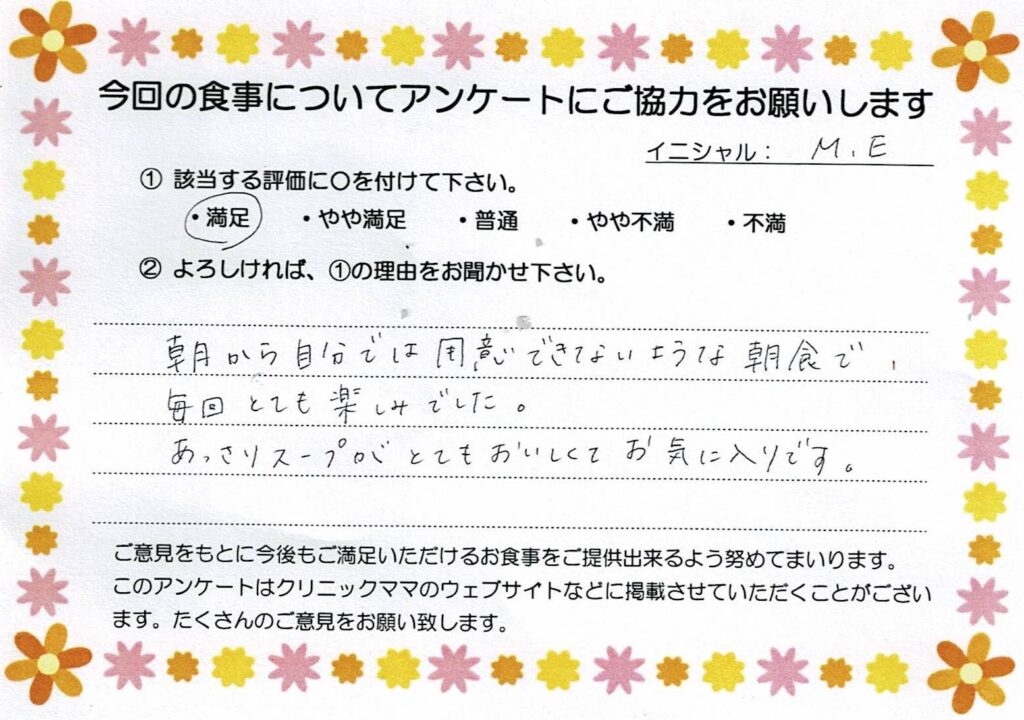 今回の食事についてアンケートにご協力をお願いします
イニシャル： M.E
① 該当する評価に〇を付けて下さい。
・満足 ・やや満足 ・普通 ・やや不満 ・不満
② よろしければ、①の理由をお聞かせ下さい。
朝から自分では用意できないような朝食で、
毎回とても楽しみでした。
あっさりスープがとてもおいしくてお気に入りです。
ご意見をもとに今後もご満足いただけるお食事をご提供出来るよう努めてまいります。
このアンケートはクリニックママのウェブサイトなどに掲載させていただくことがござい
ます。たくさんのご意見をお願い致します。